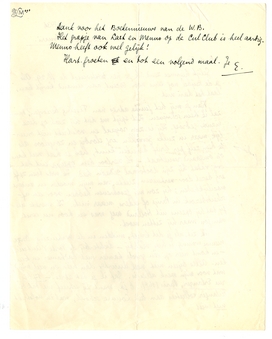 Dank voor het Boekennieuws van de W.B.
Het grapje van Dast en Menno op de Cul Club is heel aardig.
Menno heeft ook wel gelijk!
Hart. groeten en tot een volgend maal. Je E.